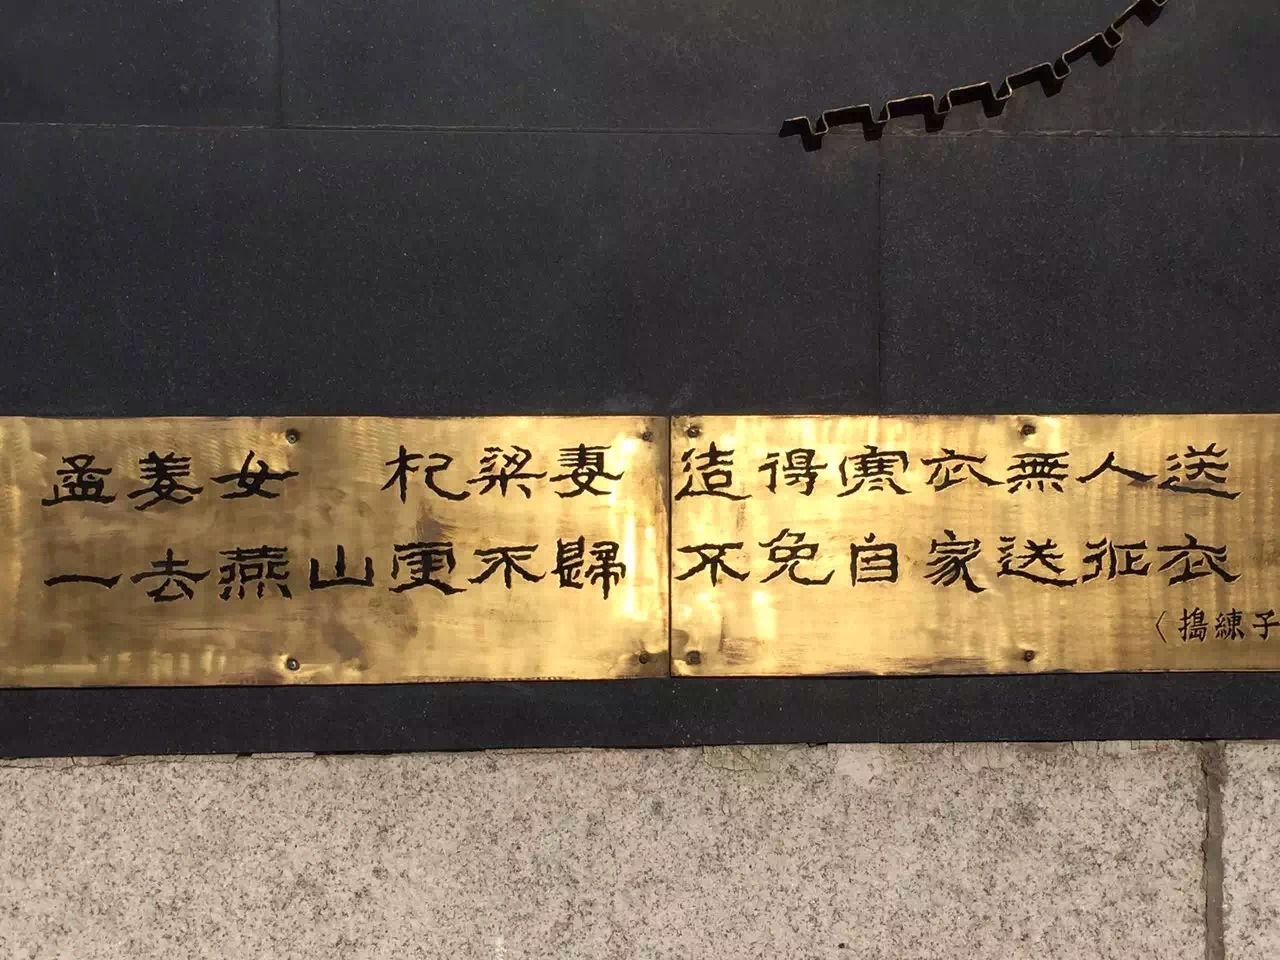 孟姜女 杞梁妻 造得寒衣無人送
一去燕山更不歸 不免自家送征衣
〈搗練子